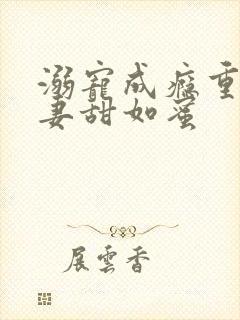 溺寵成癮重
妻甜如蜜
展雲香